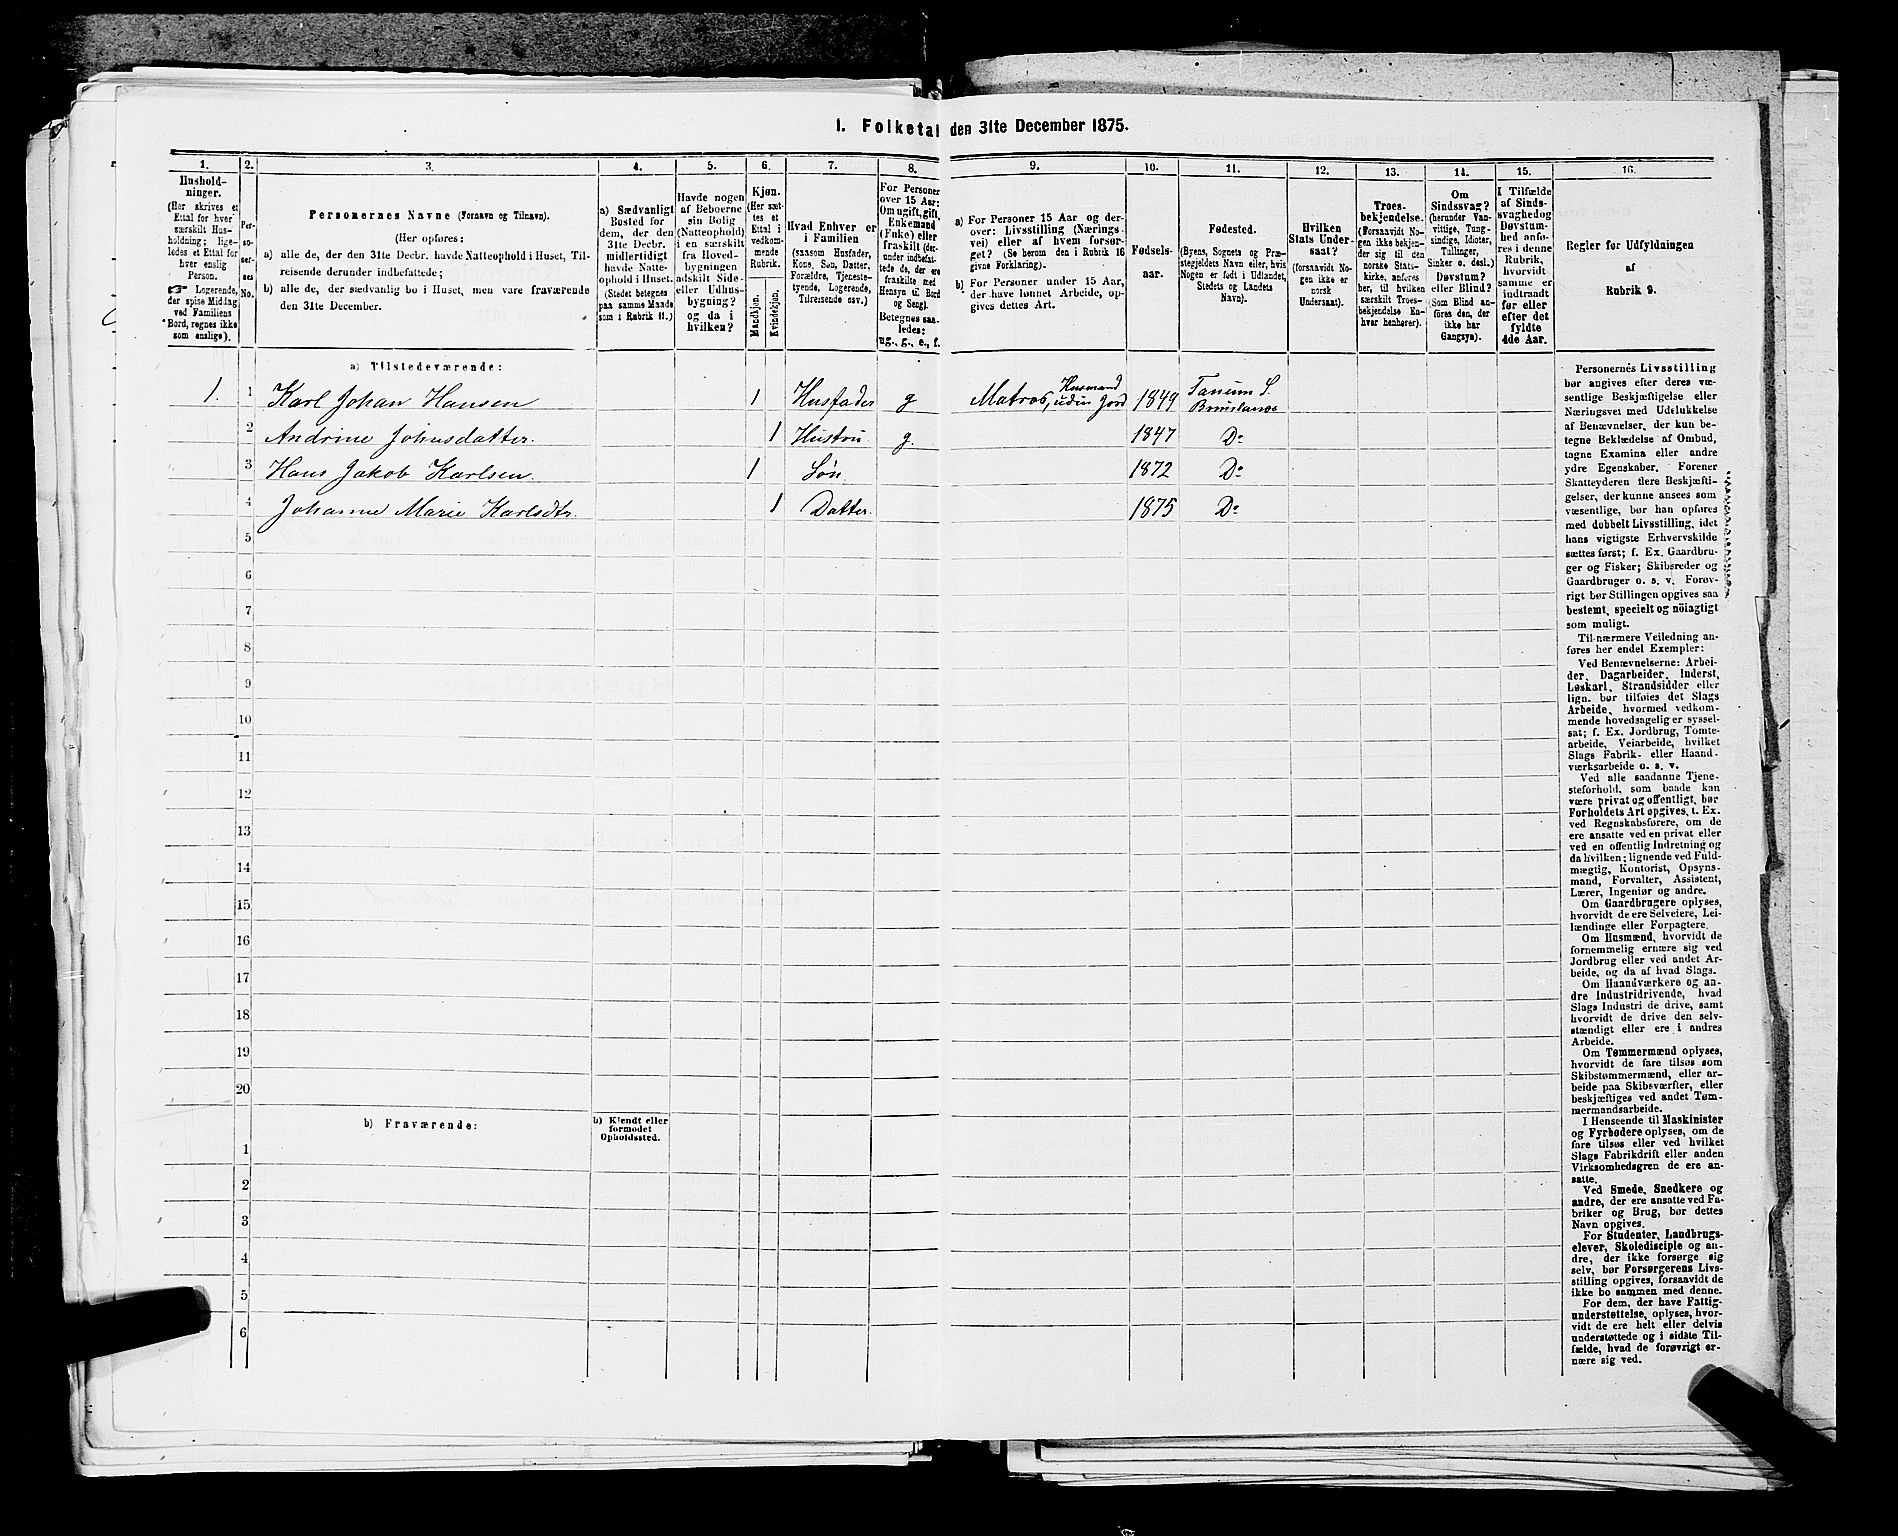 1. Folketal den 31te December 1875.
1.
Hushold-
ninger.
(Her skrives et
Ettal for hver
særskilt Hus-
holdning; lige-
ledes et Ettal for
hver enslig
Person.
☛ Logerende,
der spise Middag
ved Familiens
Bord, regnes ikke
som enslige).
2.
Per-
so-
ner-
nes
No.
3.
Personernes Navne (Fornavn og Tilnavn).
(Her opføres:
a) alle de, der den 31te Decbr. havde Natteophold i Huset, Til-
reisende derunder indbefattede;
b) alle de, der sædvanlig bo i Huset, men vare fraværende
den 31te December.
4.
a) Sædvanligt
Bosted for
dem, der den
31te Decbr.
midlertidigt
havde Natte-
ophold i Huset.
(Stedet betegnes
paa samme Maade
som i Rubrik 11.)
5.
Havde nogen
af Beboerne
sin Bolig
(Natteophold)
i en særskilt
fra Hoved-
bygningen
adskilt Side-
eller Udhus-
bygning?
og da i
hvilken?
6.
Kjøn.
(Her sæt-
tes et
Ettal i
vedkom-
mende
Rubrik.
Mandkjøn.
Kvindekjøn.
7.
Hvad Enhver er
i Familien
(saasom Husfader,
Kone, Søn, Datter,
Forældre, Tjeneste-
tyende, Logerende,
Tilreisende osv.)
8.
For Personer
over 15 Aar:
Om ugift, gift,
Enkemand
(Enke) eller
fraskilt (der-
under indbefat-
tede de, der ere
fraskilte med
Hensyn til Bord
og Seng).
Betegnes saa-
ledes:
ug., g., e., f.
9.
a) For Personer 15 Aar og der-
over: Livsstilling (Nærings-
vei) eller af hvem forsør-
get? (Se herom den i Rubrik 16
givne Forklaring).
b) For Personer under 15 Aar,
der have lønnet Arbeide, op-
gives dettes Art.
10.
Fødsels-
aar.
11.
Fødested.
(Byens, Sognets og Præ-
stegjeldets Navn eller, hvis
Nogen er født i Udlandet,
Stedets og Landets
Navn).
12.
Hvilken
Stats Under-
saat?
(forsaavidt No-
gen ikke er
norsk
Undersaat).
13.
Troes-
bekjendelse.
(Forsaavidt No-
gen ikke bekjen-
der sig til den
norske Stats-
kirke, anføres
her, til hvilken
særskilt Troes-
bekjendelse En-
hver henhører).
14.
Om
Sindssvag?
(herunder Van-
vittige, Tung-
sindige, Idioter,
Tullinger,
Sinker o. desl.)
Døvstum?
eller Blind?
(Som Blind an-
føres den, der
ikke har
Gangsyn).
15.
I Tilfælde
af Sinds-
svaghed og
Døvstum-
hed anfø-
res i denne
Rubrik,
hvorvidt
samme er
indtraadt
før eller
efter det
fyldte
4de Aar.
16.
Regler for Udfyldningen
af
Rubrik 9.
a) Tilstedeværende:
1. 1 Karl Johan Hansen 1 Husfader g Matros, Husmand uden Jord 1849 Tanum S. Brunlanæs
2 Andrine Johnsdatter. 1 Hustru g. 1847 Do
3 Hans Jakob Karlsen. 1 Søn. 1872 Do
4 Johanne Marie Karlsdtr. 1 Datter. 1875 Do
5
6
7
8
9
10
11
12
13
14
15
16
17
18
19
20
b) Fraværende:
b) Kjendt eller
formodet
Opholdssted.
1
2
3
4
5
6
Personernes Livsstilling
bør angives efter deres væ-
sentlige Beskjæftigelse eller
Næringsvei med Udelukkelse
af Benævnelser, der kun be-
tegne Beklædelse af Ombud,
tagne Examina eller andre
ydre Egenskaber. Forener
Skatteyderen flere Beskjæfti-
gelser, der kunne ansees som
væsentlige, bør han opføres
med dobbelt Livsstilling, idet
hans vigtigste Erhvervskilde
sættes først; f. Ex. Gaardbru-
ger og Fisker; Skibsreder og
Gaardbruger o. s. v. Forøv-
rigt bør Stillingen opgives saa
bestemt, specielt og nöiagtigt
som muligt.
Til nærmere Veiledning an-
føres her endel Exempler:
Ved Benævnelserne: Arbei-
der, Dagarbeider, Inderst,
Løskarl, Strandsidder eller
lign. bør tilføies det Slags
Arbeide, hvormed vedkom-
mende hovedsagelig er syssel-
sat; f. Ex. Jordbrug, Tomte-
arbeide, Veiarbeide, hvilket
Slags Fabrik- eller Haand-
værksarbeide o. s. v.
Ved alle saadanne Tjene-
steforhold, som baade kan
være privat og offentligt, bør
Forholdets Art opgives, t. Ex.
ved Regnskabsførere, om de
ere ansatte ved en privat eller
ved en offentlig Indretning og
da hvilken; lignende ved Fuld-
mægtig, Kontorist, Opsyns-
mand, Forvalter, Assistent,
Lærer, Ingeniør og andre.
Om Gaardbrugere oplyses,
hvorvidt de ere Selveiere, Lei-
lændinge eller Forpagtere.
Om Husmænd, hvorvidt de
fornemmelig ernære sig ved
Jordbrug eller ved andet Ar-
beide, og da af hvad Slags.
Om Haandværkere og an-
dre Industridrivende, hvad
Slags Industri de drive, samt
hvorvidt de drive den selv-
stændigt eller ere i andres
Arbeide.
Om Tømmermænd oplyses,
hvorvidt de fare tilsøs som
Skibstømmermænd, eller ar-
beide paa Skibsværfter, eller
beskjæftiges ved andet Tøm-
mermandsarbeide.
I Henseende til Maskinister
og Fyrbødere oplyses, om de
fare tilsøs eller ved hvilket
Slags Fabrikdrift eller anden
Virksomhedsgren de ere an-
satte.
Ved Smede, Snedkere og
andre, der ere ansatte ved Fa-
briker og Brug, bør dettes
Navn opgives.
For Studenter, Landbrugs-
elever, Skoledisciple og an-
dre, der ikke forsørge sig
selv, bør Forsørgerens Livs-
stilling opgives, forsaavidt de
ikke bo sammen med denne.
For dem, der have Fattig-
understøttelse, oplyses, hvor-
vidt de ere helt eller delvis
understøttede og i sidste Til-
fælde, hvad de forøvrigt er-
nære sig ved.